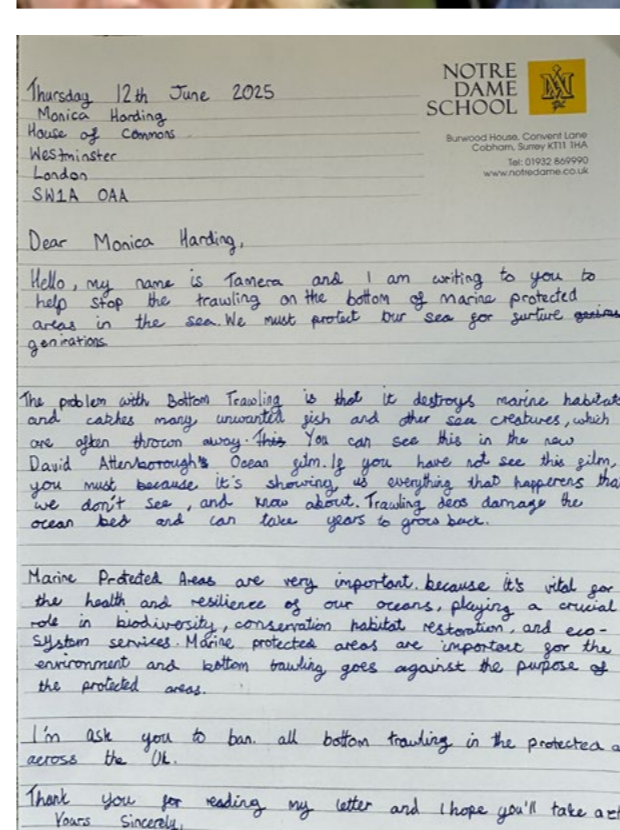 NOTRE
DAME
SCHOOL
Burwood House, Convent Lane
Cobham, Surrey KT11 1HA
Tel: 01932 869990
www.notredame.co.uk
Thursday 12th June 2025
Monica Harding
House of Commons
Westminster
London
SW1A 0AA
Dear Monica Harding,
Hello, my name is Tamera and I am writing to you to
help stop the trawling on the bottom of marine protected
areas in the sea. We must protect our sea for furture
genirations
The problem with Bottom Trawling is that it destroys marine habitats
and catches many unwanted fish and other sea creatures, which
are often thrown away. This You can see this in the new
David Attenborough's Ocean film. If you have not see this film,
you must because it's showing us everything that happerens tha
we don't see, and know about. Trawling deos damage the
ocean bed and can take years to grow back.
Marine Protected Areas are very important. because it's vital for
the health and resilience of our oceans, playing a crucial
role in biodiversity, conservation habitat restoration, and eco-
system services. Marine protected areas are important for the
environment and bottom trawling goes against the purpose of
the protected areas.
I'm ask you to ban. all bottom trawling in the protected a
across the Uk.
Thank you for reading my letter and I hope you'll take act
Yours Sincerely,